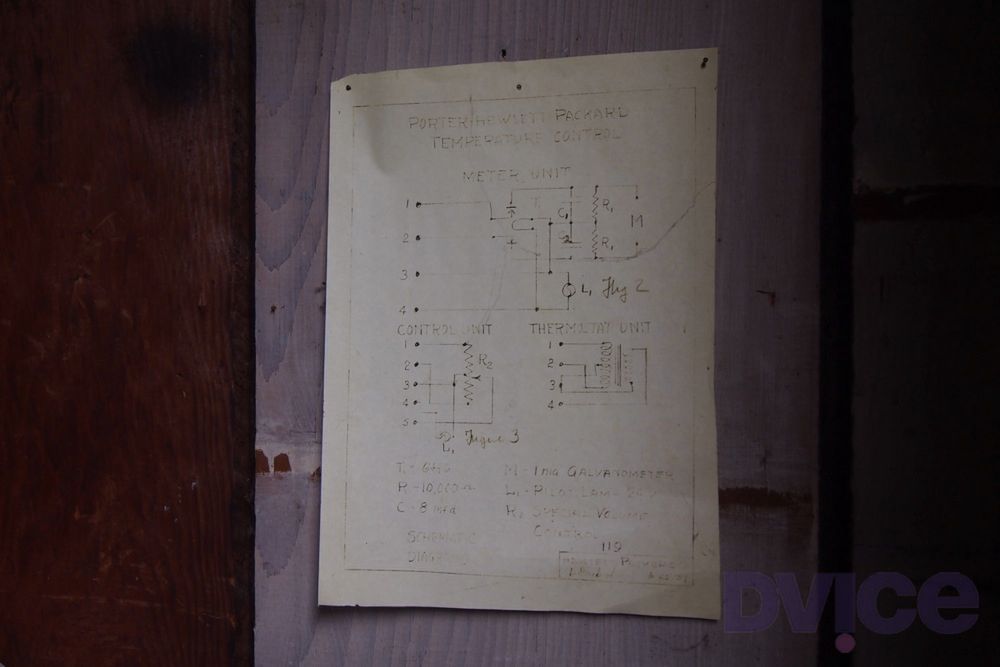 PORTER-HEWLETT-PACKARD
TEMPERATURE CONTROL
METER UNIT
1
2
3
4
T
C1
R1
R1
M
L1
Fig 2
CONTROL UNIT
1
2
3
4
5
R2
L1
Figure 3
THERMOSTAT UNIT
1
2
3
4
R - 10,000
C - 8 mfd
M - 1 ma GALVANOMETER
L1 - PILOT LAMP
R2 SPECIAL VOLUME
CONTROL
SCHEMATIC
DIAGRAM
119
DVICE